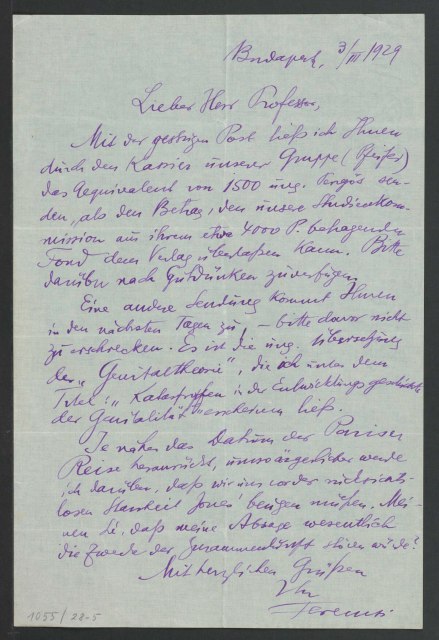 Budapest, 3/III 1929
Lieber Herr Professor,
Mit der gestrigen Post ließ ich Ihnen
durch den Kassier unserer Gruppe (Pfeifer)
das Aequivalent von 1500 ung. Pengös sen-
den, als den Betrag, den unsere Studienkom-
mission aus ihrem etwa 4000 P. betragenden
Fond dem Verlag überlaßen kann. Bitte
darüber nach Gutdünken zu verfügen.
Eine andere Sendung kommt Ihnen
in den nächsten Tagen zu, – bitte davor nicht
zu erschrecken. Es ist die ung. Übersetzung
der „Genitaltheorie", die ich unter dem
Titel: „Katastrophen in der Entwicklungsgeschichte
der Genitalität" erscheinen ließ.
Je näher das Datum der Pariser
Reise heranrückt, umso ärgerlicher werde
ich darüber, daß wir uns vor der rücksichts-
losen Starrheit Jones' beugen müßen. Mei-
nen Sie, daß meine Absage wesentlich
die Zwecke der Zusammenkunft stören würde?
Mit herzlichen Grüßen
Ihr
Ferenczi
1055/28-5